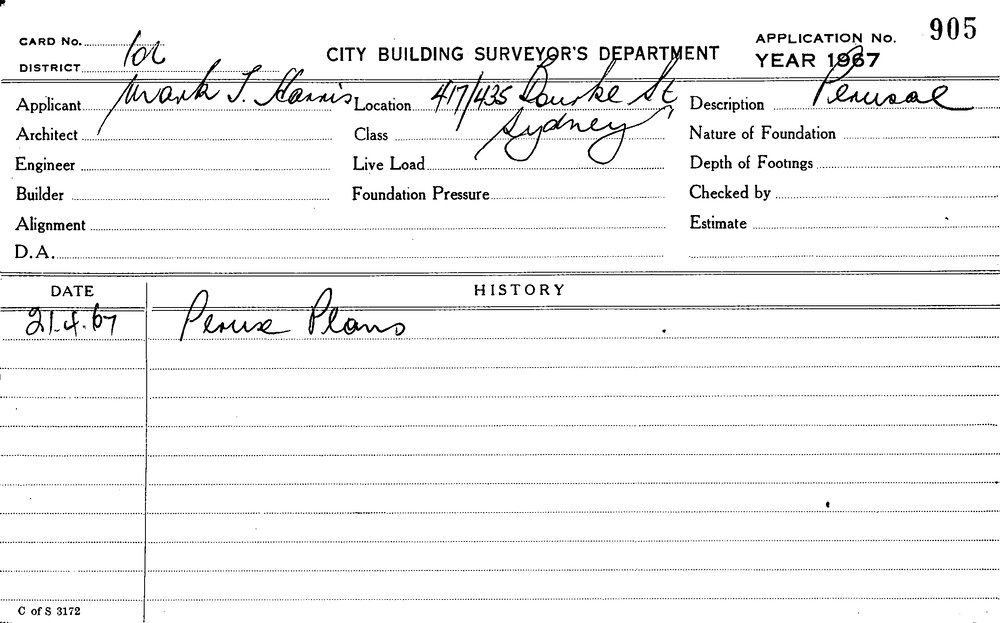 CARD No. 10c
CITY BUILDING SURVEYOR'S DEPARTMENT
APPLICATION No. 905
DISTRICT
YEAR 1967
Applicant Mark T. Harris Location 417/435 Bourke St Description Perusal
Architect Class Sydney Nature of Foundation
Engineer Live Load Depth of Footings
Builder Foundation Pressure Checked by
Alignment Estimate
D.A.
DATE HISTORY
21.4.67 Peruse Plans
C of S 3172